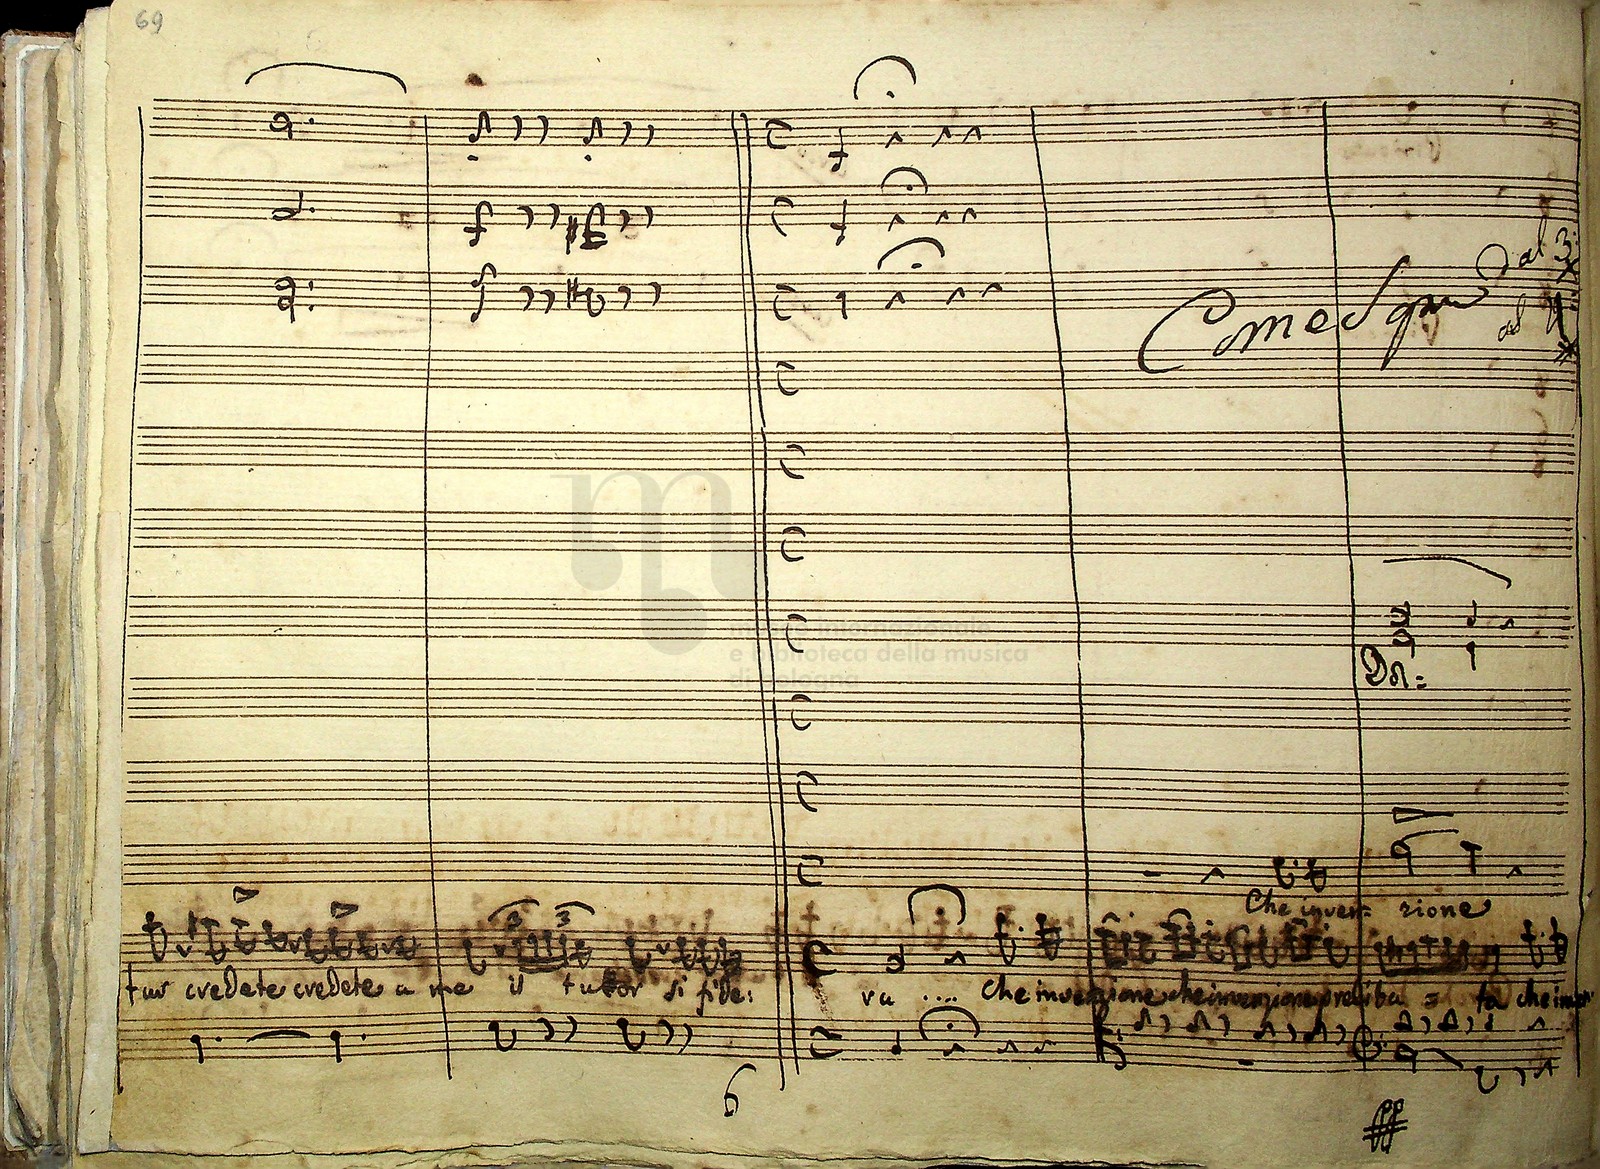 69
3
Come Sopra dal 3:
al
museo internazionale
e biblioteca della musica
di bologna
Che inven= zione
3 3
tur credete credete a me il tutor si fide:
ra .... Che invenzione che invenzione preliba = ta che inven
6